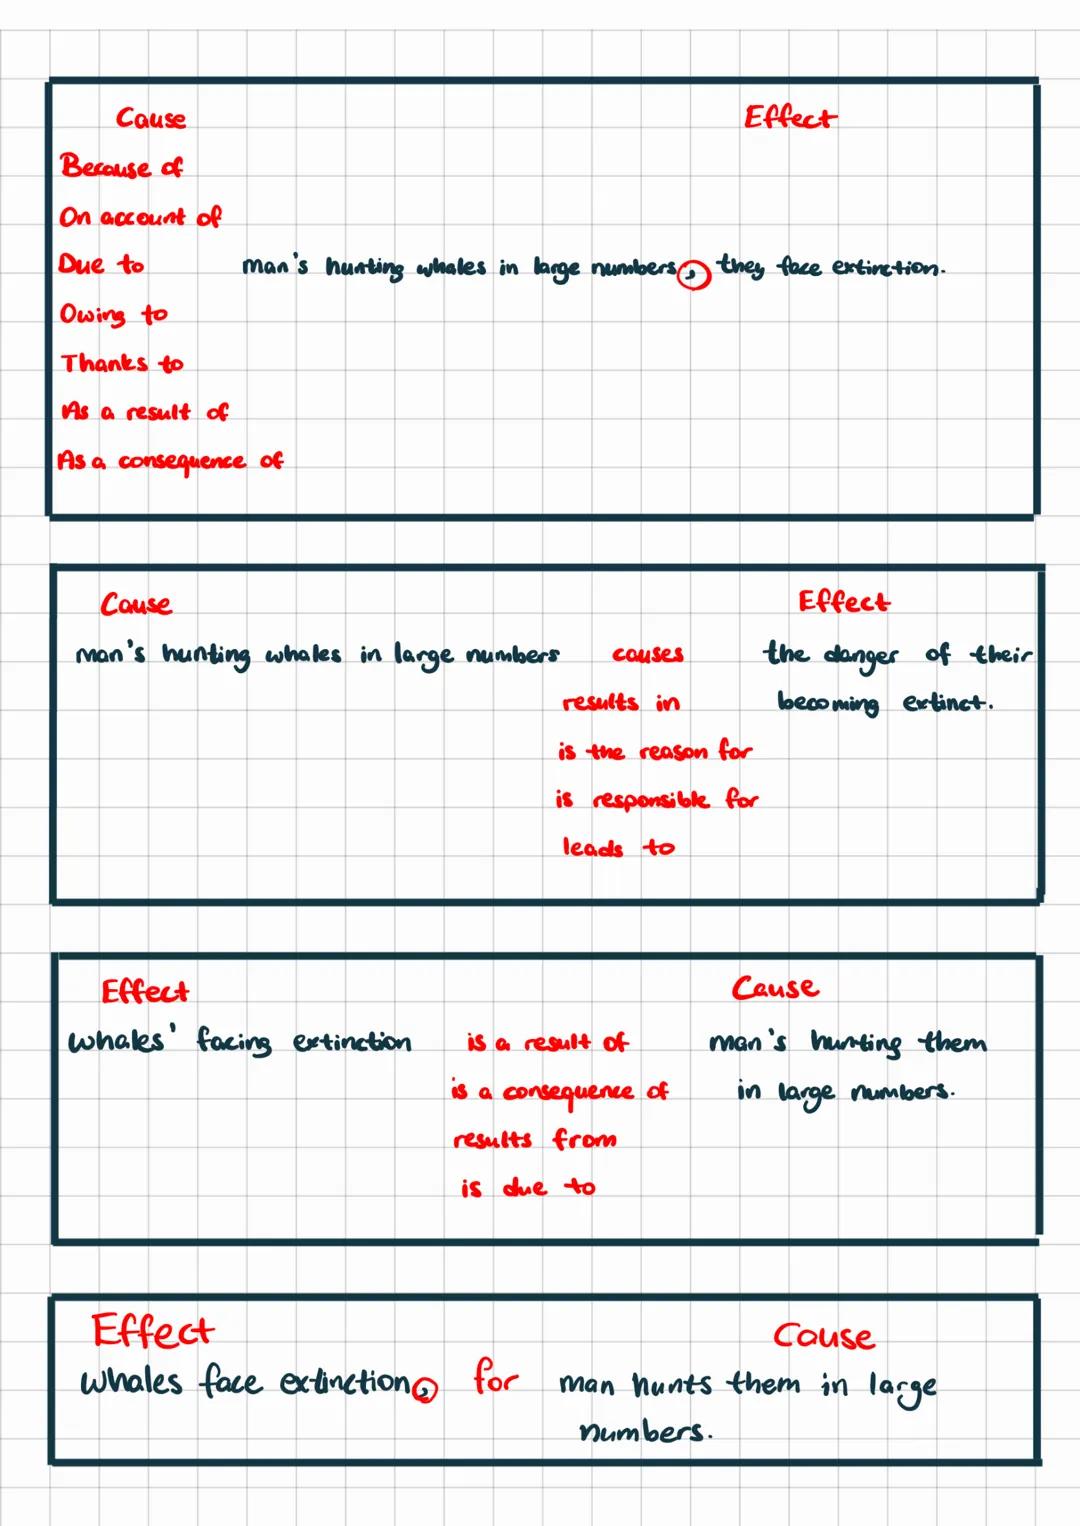 Cause Effect
Because of
On account of
Due to man's hunting whales in large numbers, they face extinction.
Owing to
Thanks to
As a result of
As a consequence of
Cause Effect
man's hunting whales in large numbers causes the danger of their
results in becoming extinct.
is the reason for
is responsible for
leads to
Effect Cause
whales' facing extinction is a result of man's hunting them
is a consequence of in large numbers.
results from
is due to
Effect Cause
whales face extinction, for man hunts them in large
numbers.